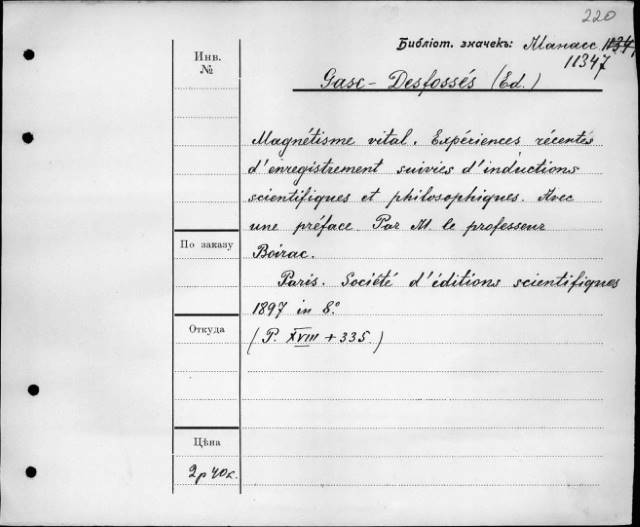 220
Библіот. значекъ: Манасс. 11341
11347
Инв.
№
Gasc-Desfossés (Ed.)
Magnétisme vital. Expériences récentes
d'enregistrement suivies d'inductions
scientifiques et philosophiques. Avec
une préface. Par M. le professeur
По заказу
Boirac.
Paris. Société d'éditions scientifiques
1897 in 8.°
Откуда
(P. XVIII + 335.)
Цѣна
2р 40к.